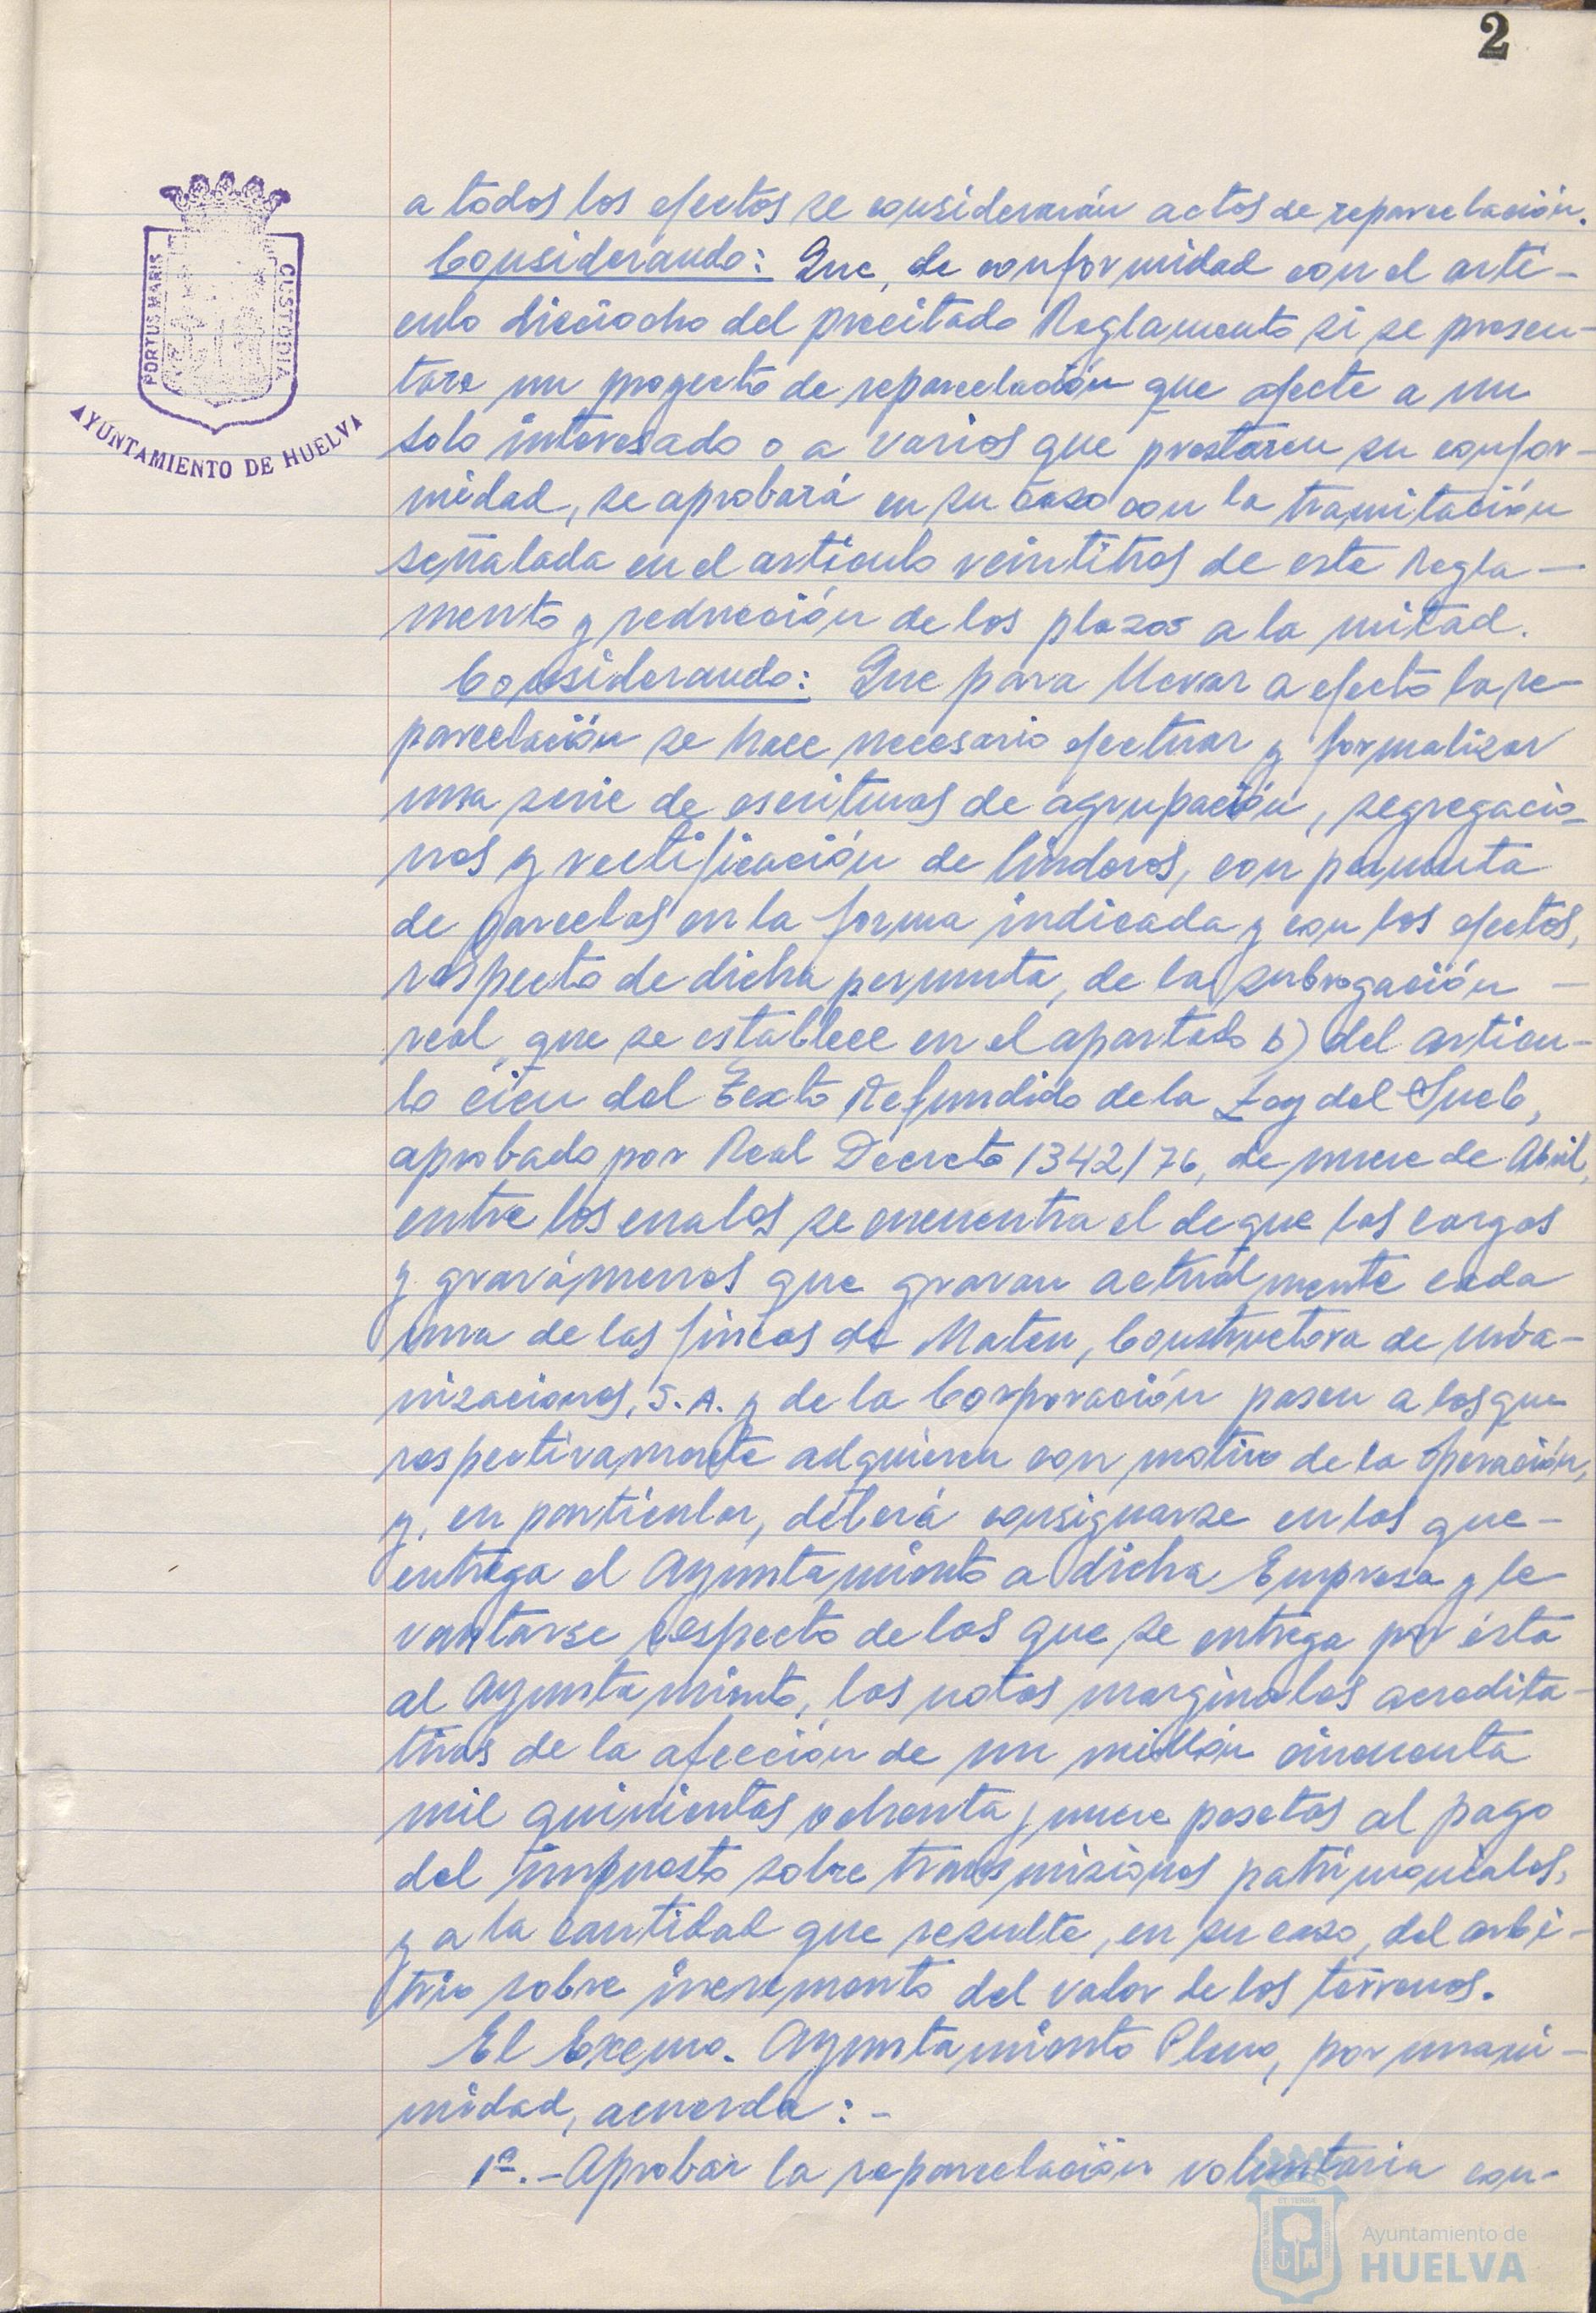 2
PORTUS MARIS
CUSTODIA
AYUNTAMIENTO DE HUELVA
a todos los efectos se considerarán actos de reparcelación.
Considerando: Que, de conformidad con el artí-
culo dieciocho del precitado Reglamento si se presen-
tare un proyecto de reparcelación que afecte a un
solo interesado o a varios que prestaren su confor-
midad, se aprobará en su caso con la tramitación
señalada en el artículo veintitres de este Regla-
mento y reducción de los plazos a la mitad.
Considerando: Que para llevar a efecto la re-
parcelación se hace necesario efectuar y formalizar
una serie de escrituras de agrupación, segregacio-
nes y rectificación de linderos, con permuta
de parcelas en la forma indicada y con los efectos,
respecto de dicha permuta, de la subrogación -
real, que se establece en el apartado b) del artícu-
lo cien del Texto Refundido de la Ley del Suelo,
aprobado por Real Decreto 1342/76, de nueve de Abril,
entre los cuales se encuentra el de que las cargas
y gravámenes que gravan actualmente cada
una de las fincas de Maten, Constructora de Urba-
nizaciones, S.A. y de la Corporación pasen a las que
respectivamente adquieren con motivo de la operación,
y, en particular, deberá consignarse en las que -
entrega el Ayuntamiento a dicha Empresa y le
vantarse respecto de las que se entrega por ésta
al Ayuntamiento, las notas marginales acredita-
tivas de la afección de un millón cincuenta
mil quinientas ochenta y nueve pesetas al pago
del impuesto sobre transmisiones patrimoniales,
y a la cantidad que resulte, en su caso, del arbi-
trio sobre incremento del valor de los terrenos.
El Excmo. Ayuntamiento Pleno, por unani-
midad, acuerda: -
1º.- Aprobar la reparcelación voluntaria con-
Ayuntamiento de
HUELVA